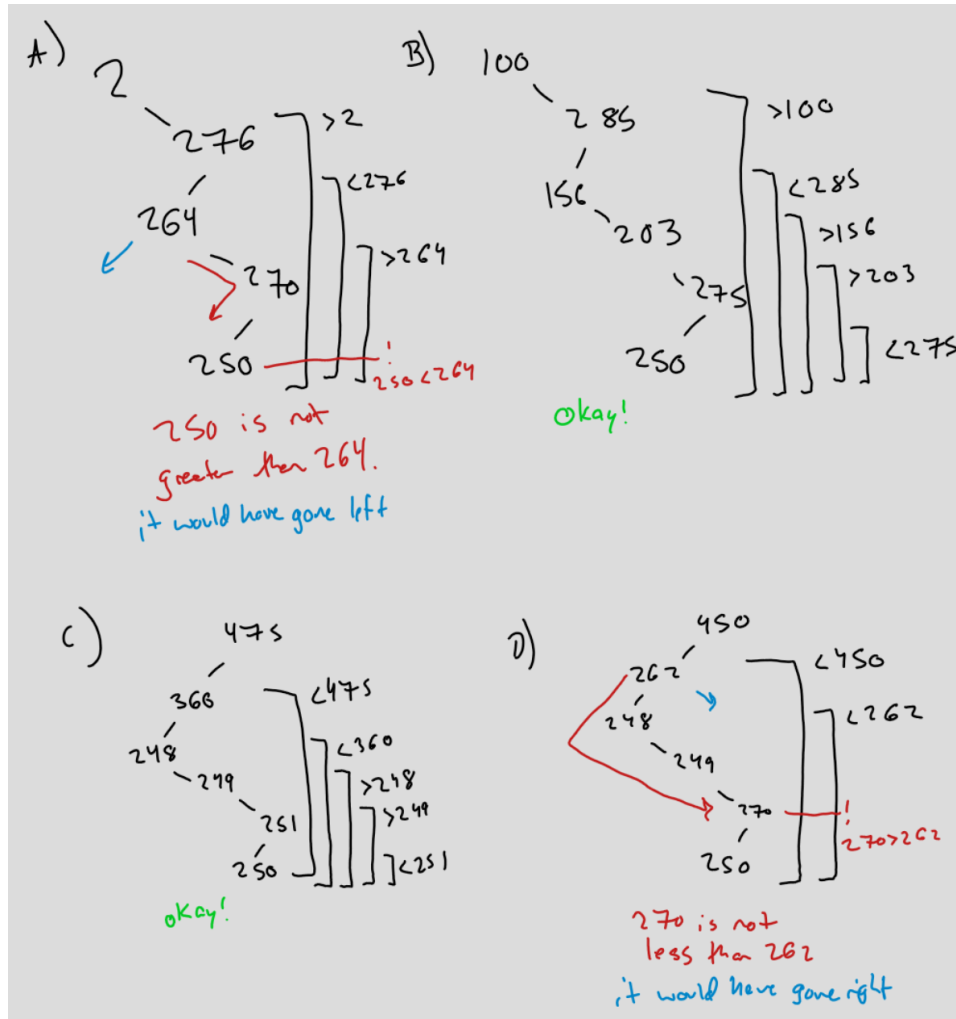 A)
2
276
264
270
250
>2
<276
>264
!
250<264
250 is not
greater then 264.
it would have gone left
B)
100
285
156
203
275
250
>100
<285
>156
>203
<275
okay!
C)
475
360
248
249
251
250
<475
<360
>248
>249
<251
okay!
D)
450
262
248
249
270
250
<450
<262
!
270>262
270 is not
less than 262
it would have gone right